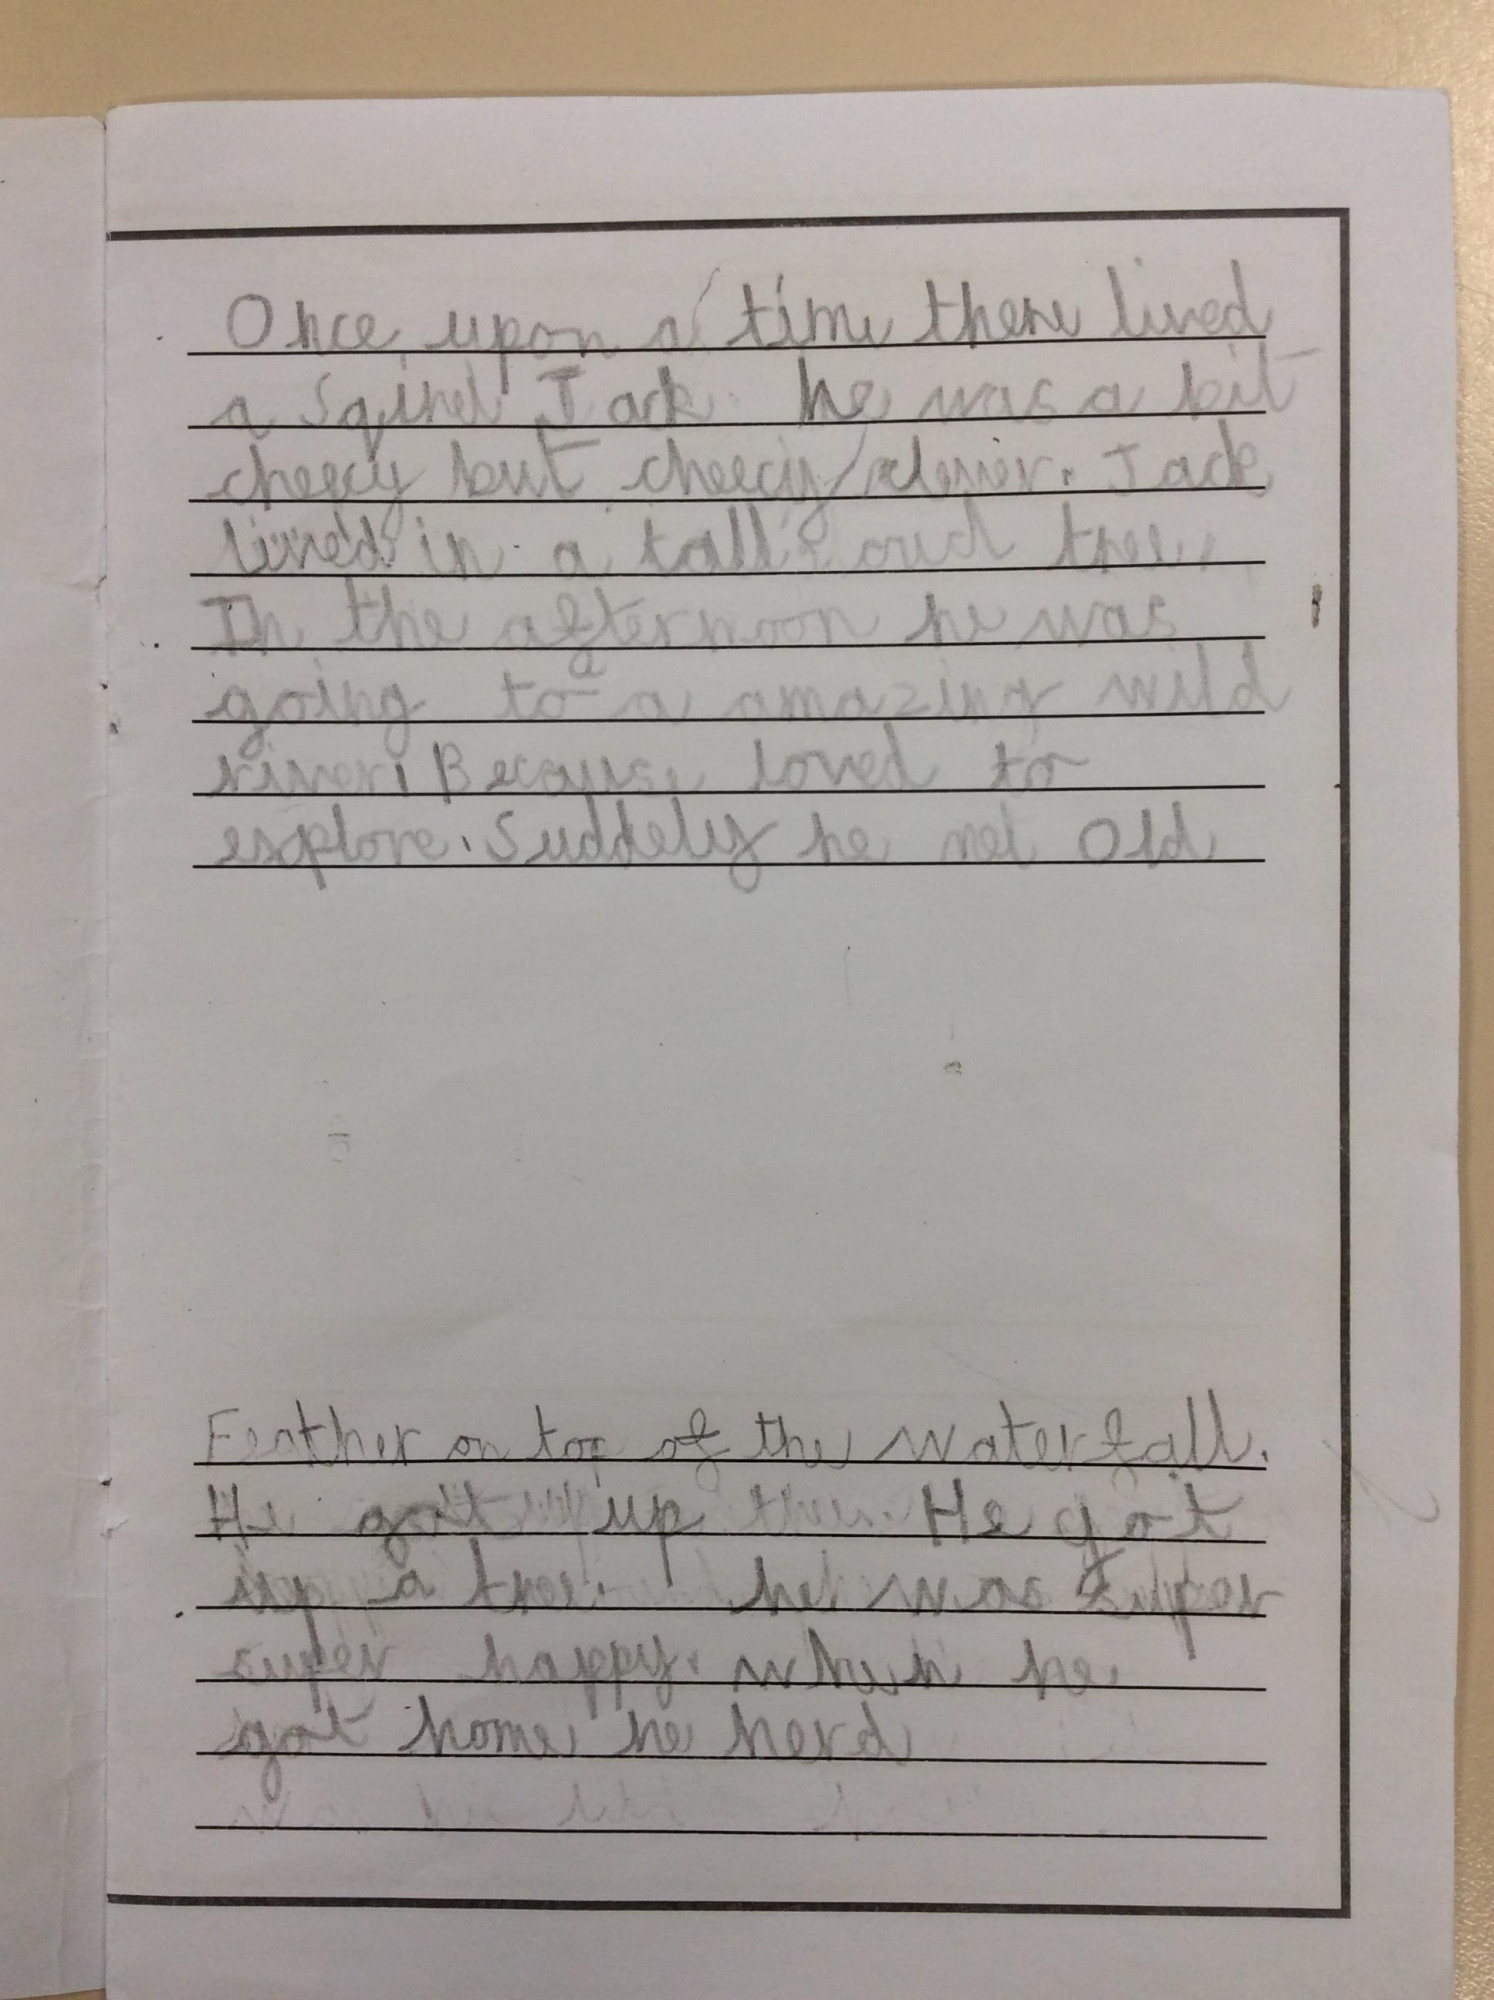 Once upon a time there lived
a Sqirrel Jack he was a bit
cheecy but cheecy clever. Jack
lived in a tall tree.
In the afternoon he was
going to a amazing wild
river. Because loved to
explore. Suddely he met Old
Feather on top of the waterfall.
He got up He got
up a tree. he was super
super happy. when he
got home he herd